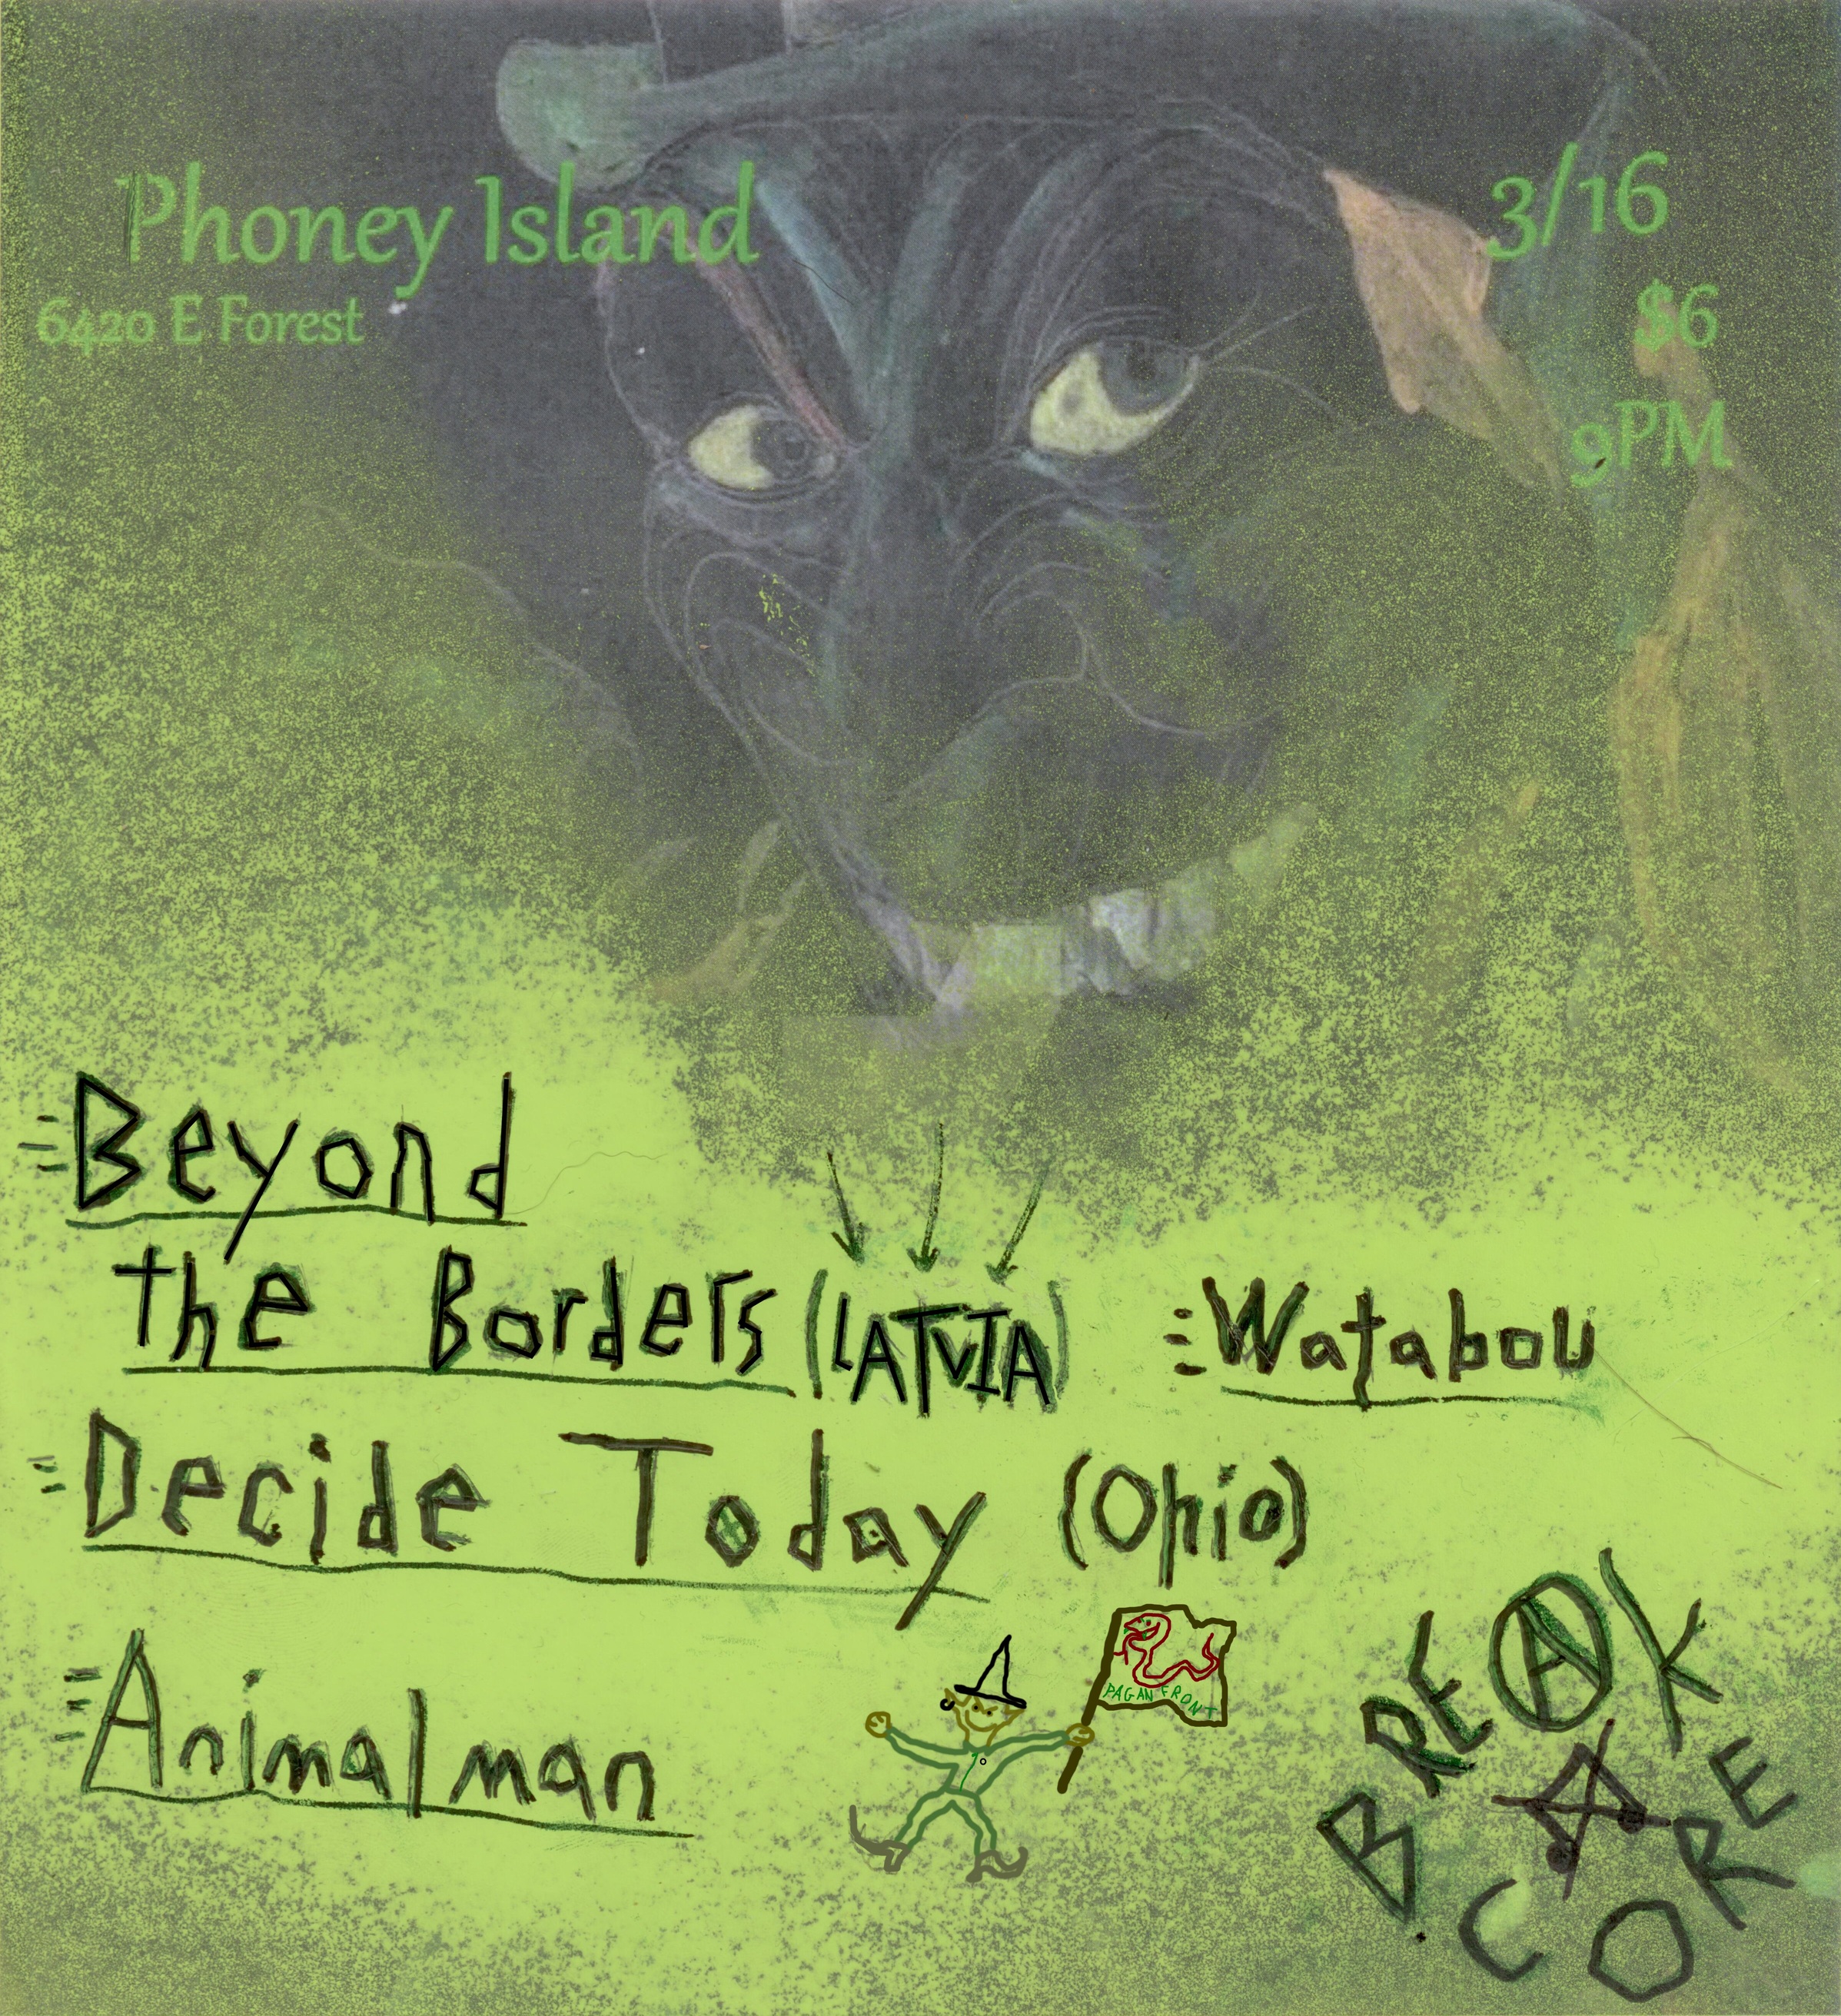 Phoney Island
6420 E Forest
3/16
$6
9PM
Beyond
the Borders (LATVIA)
Watabou
Decide Today (Ohio)
Animalman
PAGAN FRONT
BREAK
CORE